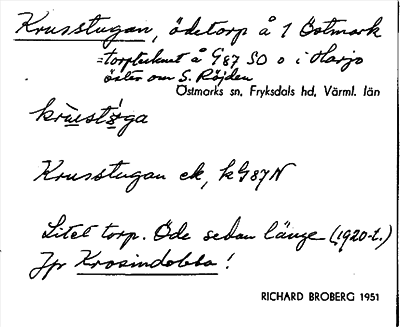 Krusstugan, ödetorp å 1 Östmark
= torptecknet å G87 SO o i Harjo
öster om S. Röjden
Östmarks sn, Fryksdals hd, Värml. län
krùstǿga
Krusstugan ek, k G87N
Litet torp. Öde sedan länge (1920-t.)
Jfr Krosindobba!
RICHARD BROBERG 1951